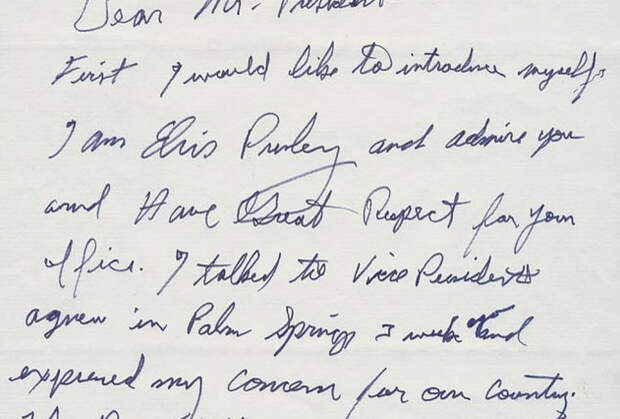 Dear Mr. President
First I would like to introduce myself.
I am Elvis Presley and admire you
and Have Great Respect for your
office. I talked to Vice President
agnew in Palm Springs 3 weeks ago and
expressed my concern for our country.